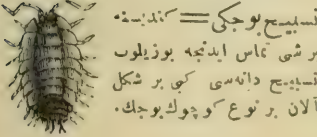 تسبیح بوجكی = كندیسنه
بر شی تماس ایدنجه بوزیلوب
تسبیح دانه‌سی كبی بر شكل
آلان بر نوع كوچوك بوجك.